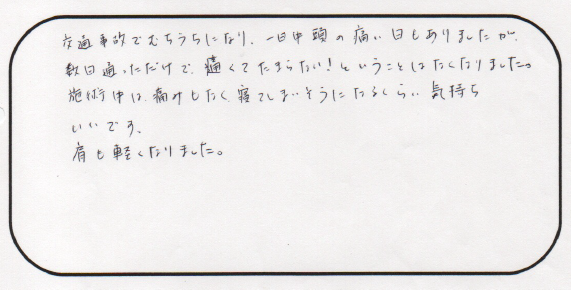 交通事故でむちうちになり、一日中頭の痛い日もありましたが、
数回通っただけで、痛くてたまらない！ということはなくなりました。
施術中は、痛みもなく、寝てしまいそうになるくらい気持ち
いいです。
肩も軽くなりました。